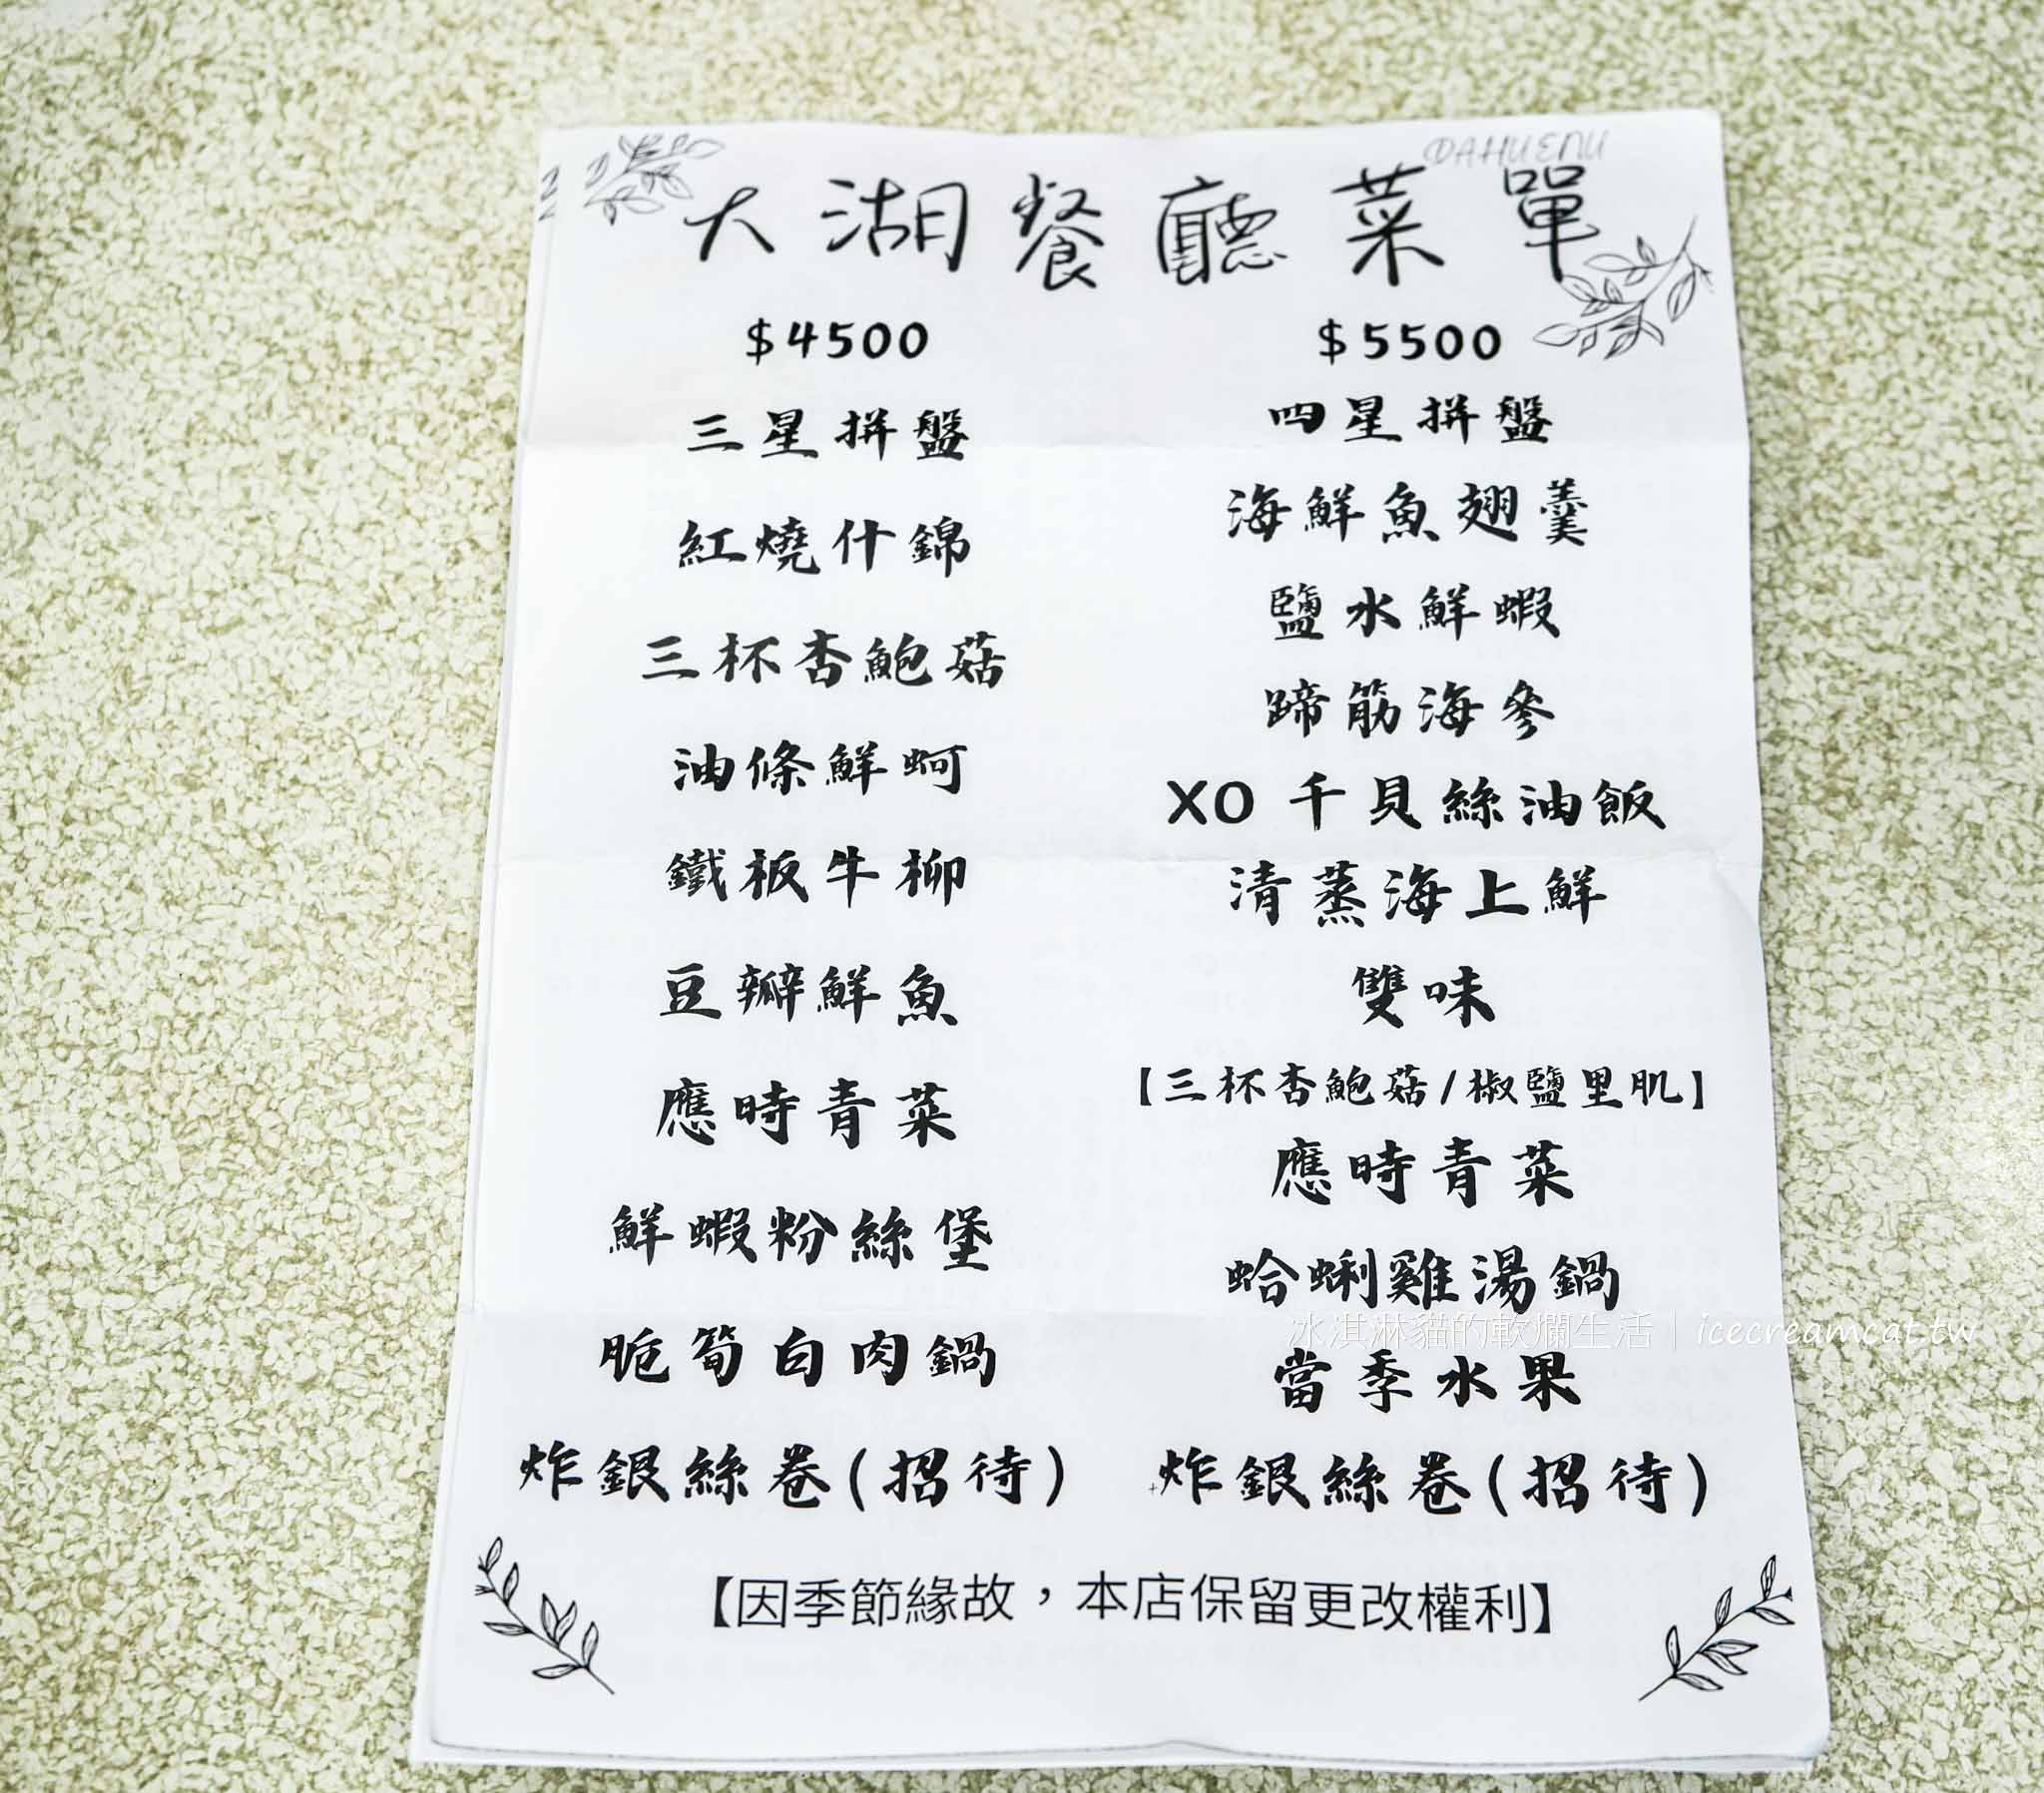 DAHUENU
大湖餐廳菜單
$4500
三星拼盤
紅燒什錦
三杯杏鮑菇
油條鮮蚵
鐵板牛柳
豆瓣鮮魚
應時青菜
鮮蝦粉絲堡
脆筍白肉鍋
炸銀絲卷(招待)
$5500
四星拼盤
海鮮魚翅羹
鹽水鮮蝦
蹄筋海參
XO 干貝絲油飯
清蒸海上鮮
雙味
【三杯杏鮑菇/椒鹽里肌】
應時青菜
蛤蜊雞湯鍋
當季水果
炸銀絲卷(招待)
【因季節緣故，本店保留更改權利】
冰淇淋貓的軟爛生活｜icecreamcat.tw